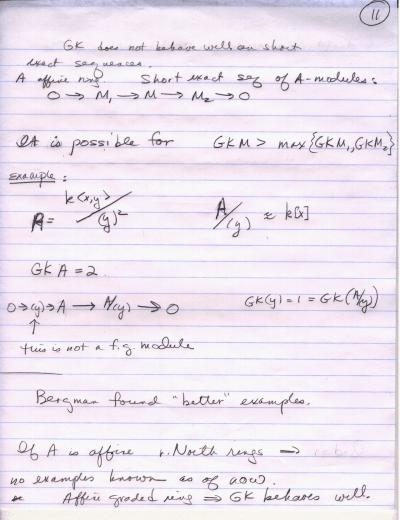 11
GK does not behave well on short
exact sequences.
A affine ring. Short exact seq of A-modules:
0 → M₁ → M → M₂ → 0
It is possible for GK M > max{GK M₁, GK M₂}
example:
A = k⟨x,y⟩/(y)² A/(y) ≈ k[x]
GK A = 2
0→(y)→A → A/(y) → 0 GK(y) = 1 = GK(A/(y))
↑
this is not a f.g. module
Bergman found "better" examples.
If A is affine r. Noeth rings →
no examples known as of now.
Affine graded ring ⇒ GK behaves well.